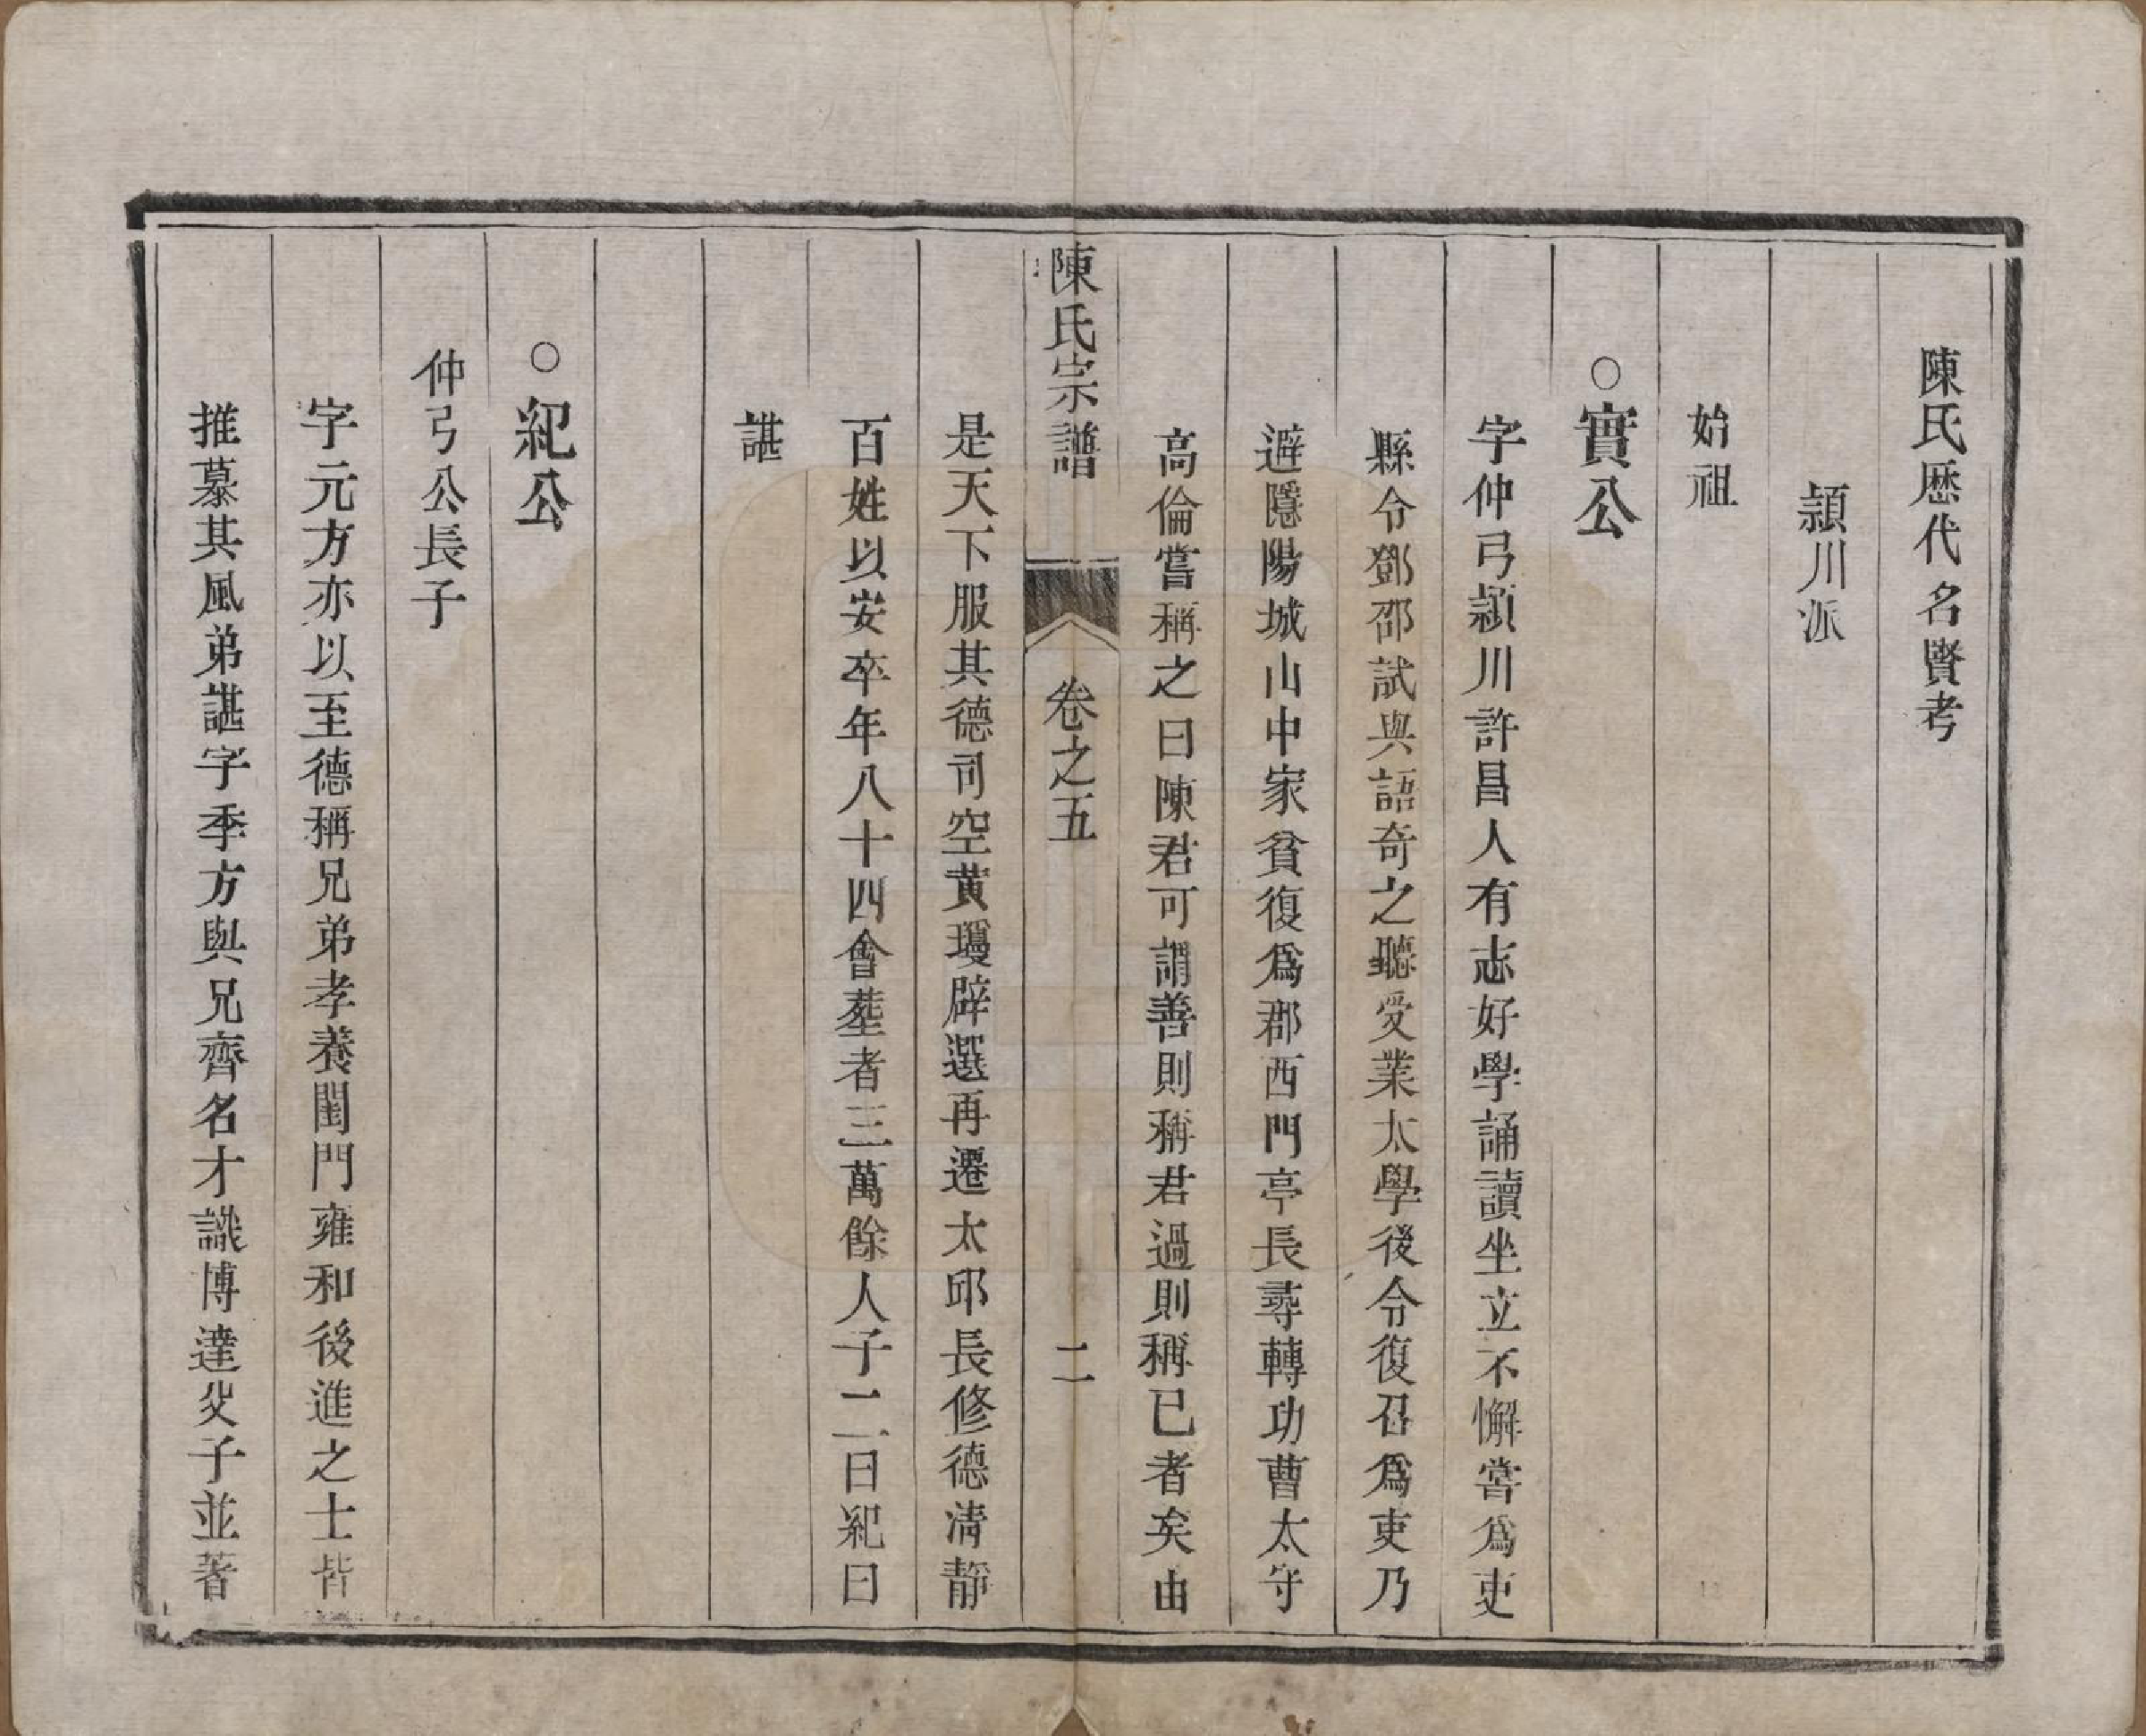 陳氏歷代名賢考
頴川派
始祖
○實公
字仲弓頴川許昌人有志好學誦讀坐立不懈嘗爲吏
縣令鄧邵試與語奇之聽受業太學後令復召爲吏乃
避隱陽城山中家貧復爲郡西門亭長尋轉功曹太守
高倫嘗稱之曰陳君可謂善則稱君過則稱已者矣由
陳氏宗譜
卷之五
二
是天下服其德司空黃瓊辟選再遷太邱長修德清靜
百姓以安卒年八十四會塟者三萬餘人子二曰紀曰
諶
○紀公
仲弓公長子
字元方亦以至德稱兄弟孝養閨門雍和後進之士皆
推慕其風弟諶字季方與兄齊名才識博達父子並著